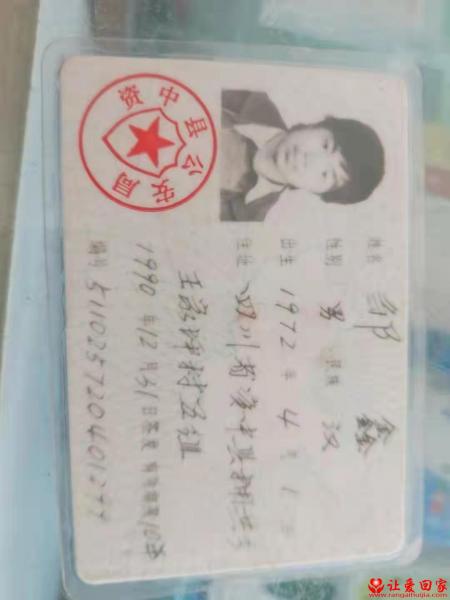 姓名 邹 鑫
性别 男 民族 汉
出生 1972 年 4 月 1 日
住址 四川省资中县
村五组
1990年12月31日签发 有效期限10年
编号 511025720401277
资中县公安局
让爱回家
www.rangaihuijia.com